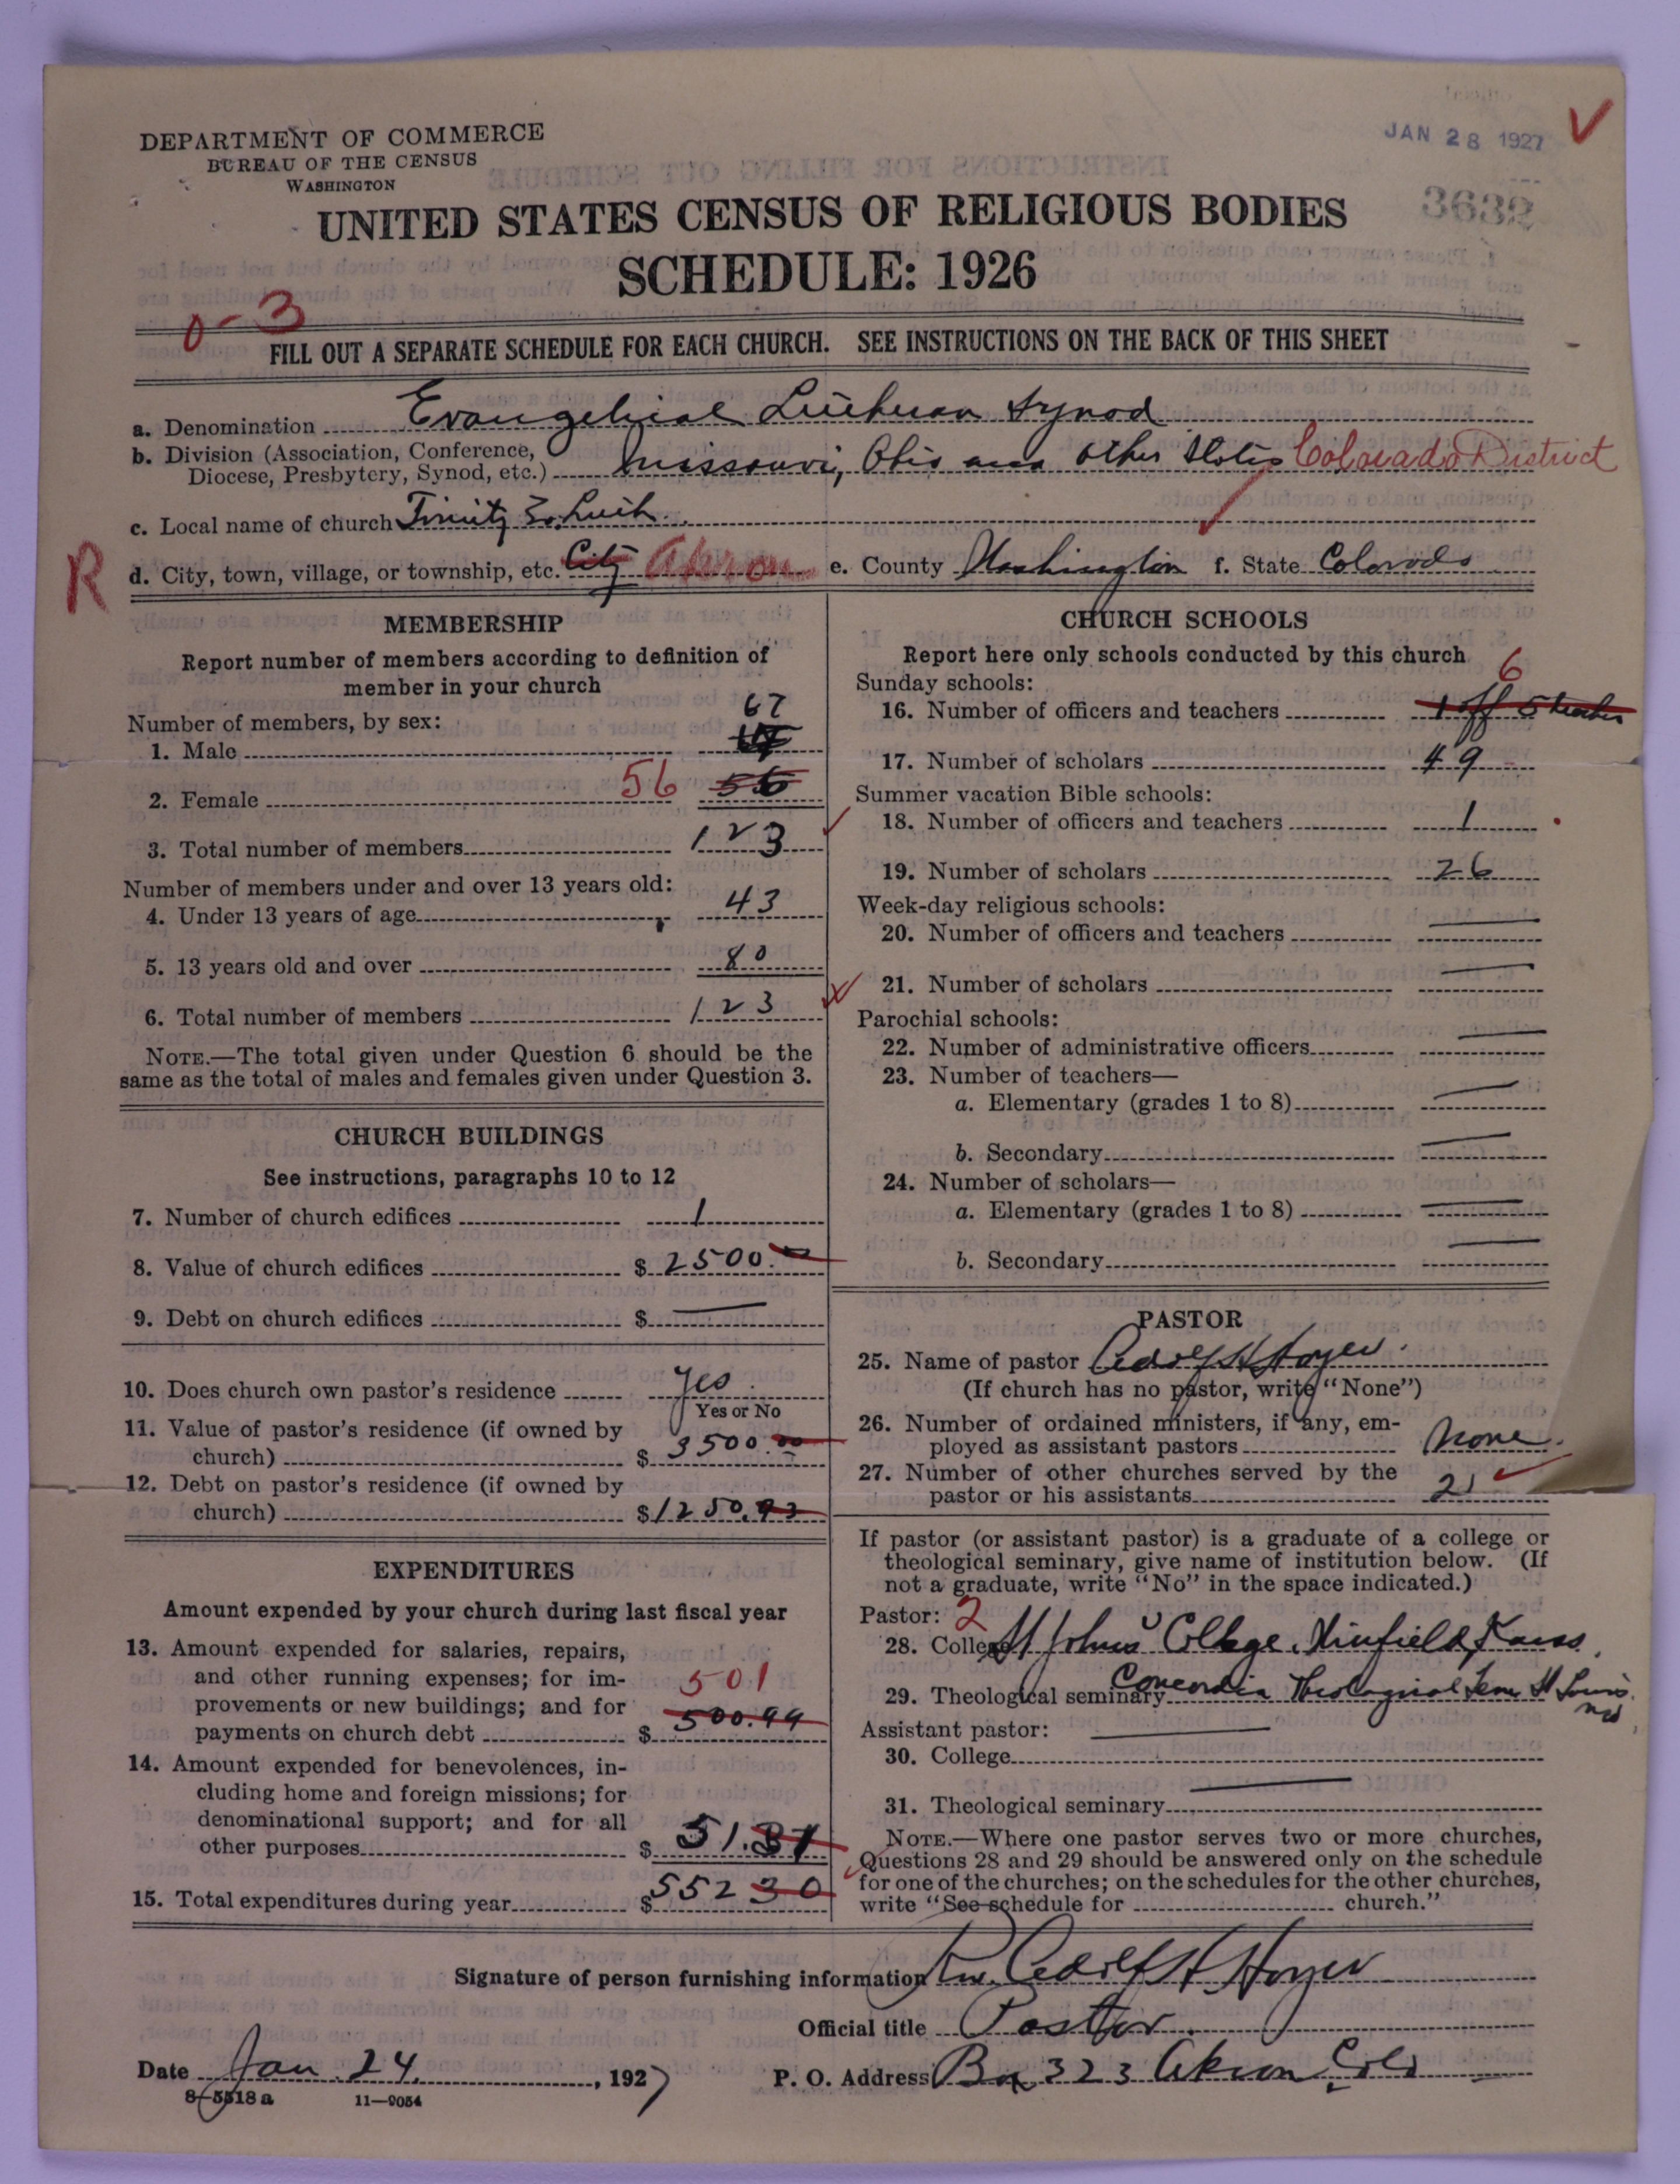 DEPARTMENT OF COMMERCE
BUREAU OF THE CENSUS
WASHINGTON
JAN 28 1927
UNITED STATES CENSUS OF RELIGIOUS BODIES
3632
SCHEDULE: 1926
0-3
FILL OUT A SEPARATE SCHEDULE FOR EACH CHURCH. SEE INSTRUCTIONS ON THE BACK OF THIS SHEET
a. Denomination Evangelical Lutheran Synod
b. Division (Association, Conference, Diocese, Presbytery, Synod, etc.) Missouri, Ohio and other States Colorado District
c. Local name of church Trinity Ev. Luth.
R
d. City, town, village, or township, etc. City Akron e. County Washington f. State Colorado
MEMBERSHIP
Report number of members according to definition of
member in your church
Number of members, by sex:
1. Male 67
2. Female 56 56
3. Total number of members 123
Number of members under and over 13 years old:
4. Under 13 years of age 43
5. 13 years old and over 80
6. Total number of members 123
NOTE.—The total given under Question 6 should be the
same as the total of males and females given under Question 3.
CHURCH BUILDINGS
See instructions, paragraphs 10 to 12
7. Number of church edifices 1
8. Value of church edifices $ 2500.00
9. Debt on church edifices $ —
10. Does church own pastor's residence Yes
Yes or No
11. Value of pastor's residence (if owned by
church) $ 3500.00
12. Debt on pastor's residence (if owned by
church) $1250.93
EXPENDITURES
Amount expended by your church during last fiscal year
13. Amount expended for salaries, repairs,
and other running expenses; for im-
provements or new buildings; and for
payments on church debt $ 501 500.99
14. Amount expended for benevolences, in-
cluding home and foreign missions; for
denominational support; and for all
other purposes $ 51.31
15. Total expenditures during year $ 552 30
CHURCH SCHOOLS
Report here only schools conducted by this church
Sunday schools:
16. Number of officers and teachers 6 1 off 5 teacher
17. Number of scholars 49
Summer vacation Bible schools:
18. Number of officers and teachers 1
19. Number of scholars 26
Week-day religious schools:
20. Number of officers and teachers —
21. Number of scholars —
Parochial schools:
22. Number of administrative officers —
23. Number of teachers—
a. Elementary (grades 1 to 8) —
b. Secondary —
24. Number of scholars—
a. Elementary (grades 1 to 8) —
b. Secondary —
PASTOR
25. Name of pastor Adolf H Hoyer.
(If church has no pastor, write "None")
26. Number of ordained ministers, if any, em-
ployed as assistant pastors None.
27. Number of other churches served by the
pastor or his assistants 2
If pastor (or assistant pastor) is a graduate of a college or
theological seminary, give name of institution below. (If
not a graduate, write "No" in the space indicated.)
Pastor: 2
28. College St Johns College, Winfield, Kans.
29. Theological seminary Concordia Theological Sem St Louis, Mo
Assistant pastor: —
30. College
31. Theological seminary —
NOTE.—Where one pastor serves two or more churches,
Questions 28 and 29 should be answered only on the schedule
for one of the churches; on the schedules for the other churches,
write "See schedule for church."
Signature of person furnishing information Rev. Adolf H Hoyer
Official title Pastor.
Date Jan. 24, 1927 P. O. Address Box 323 Akron, Colo
8-5518 a 11-9054